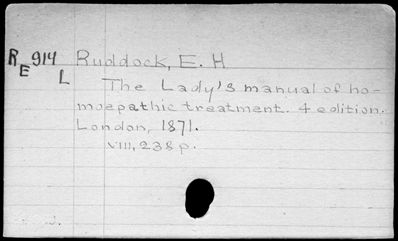 RE 914 L Ruddock, E. H
The Lady's manual of ho-
moepathic treatment. 4 edition.
London, 1871.
VIII, 238 p.